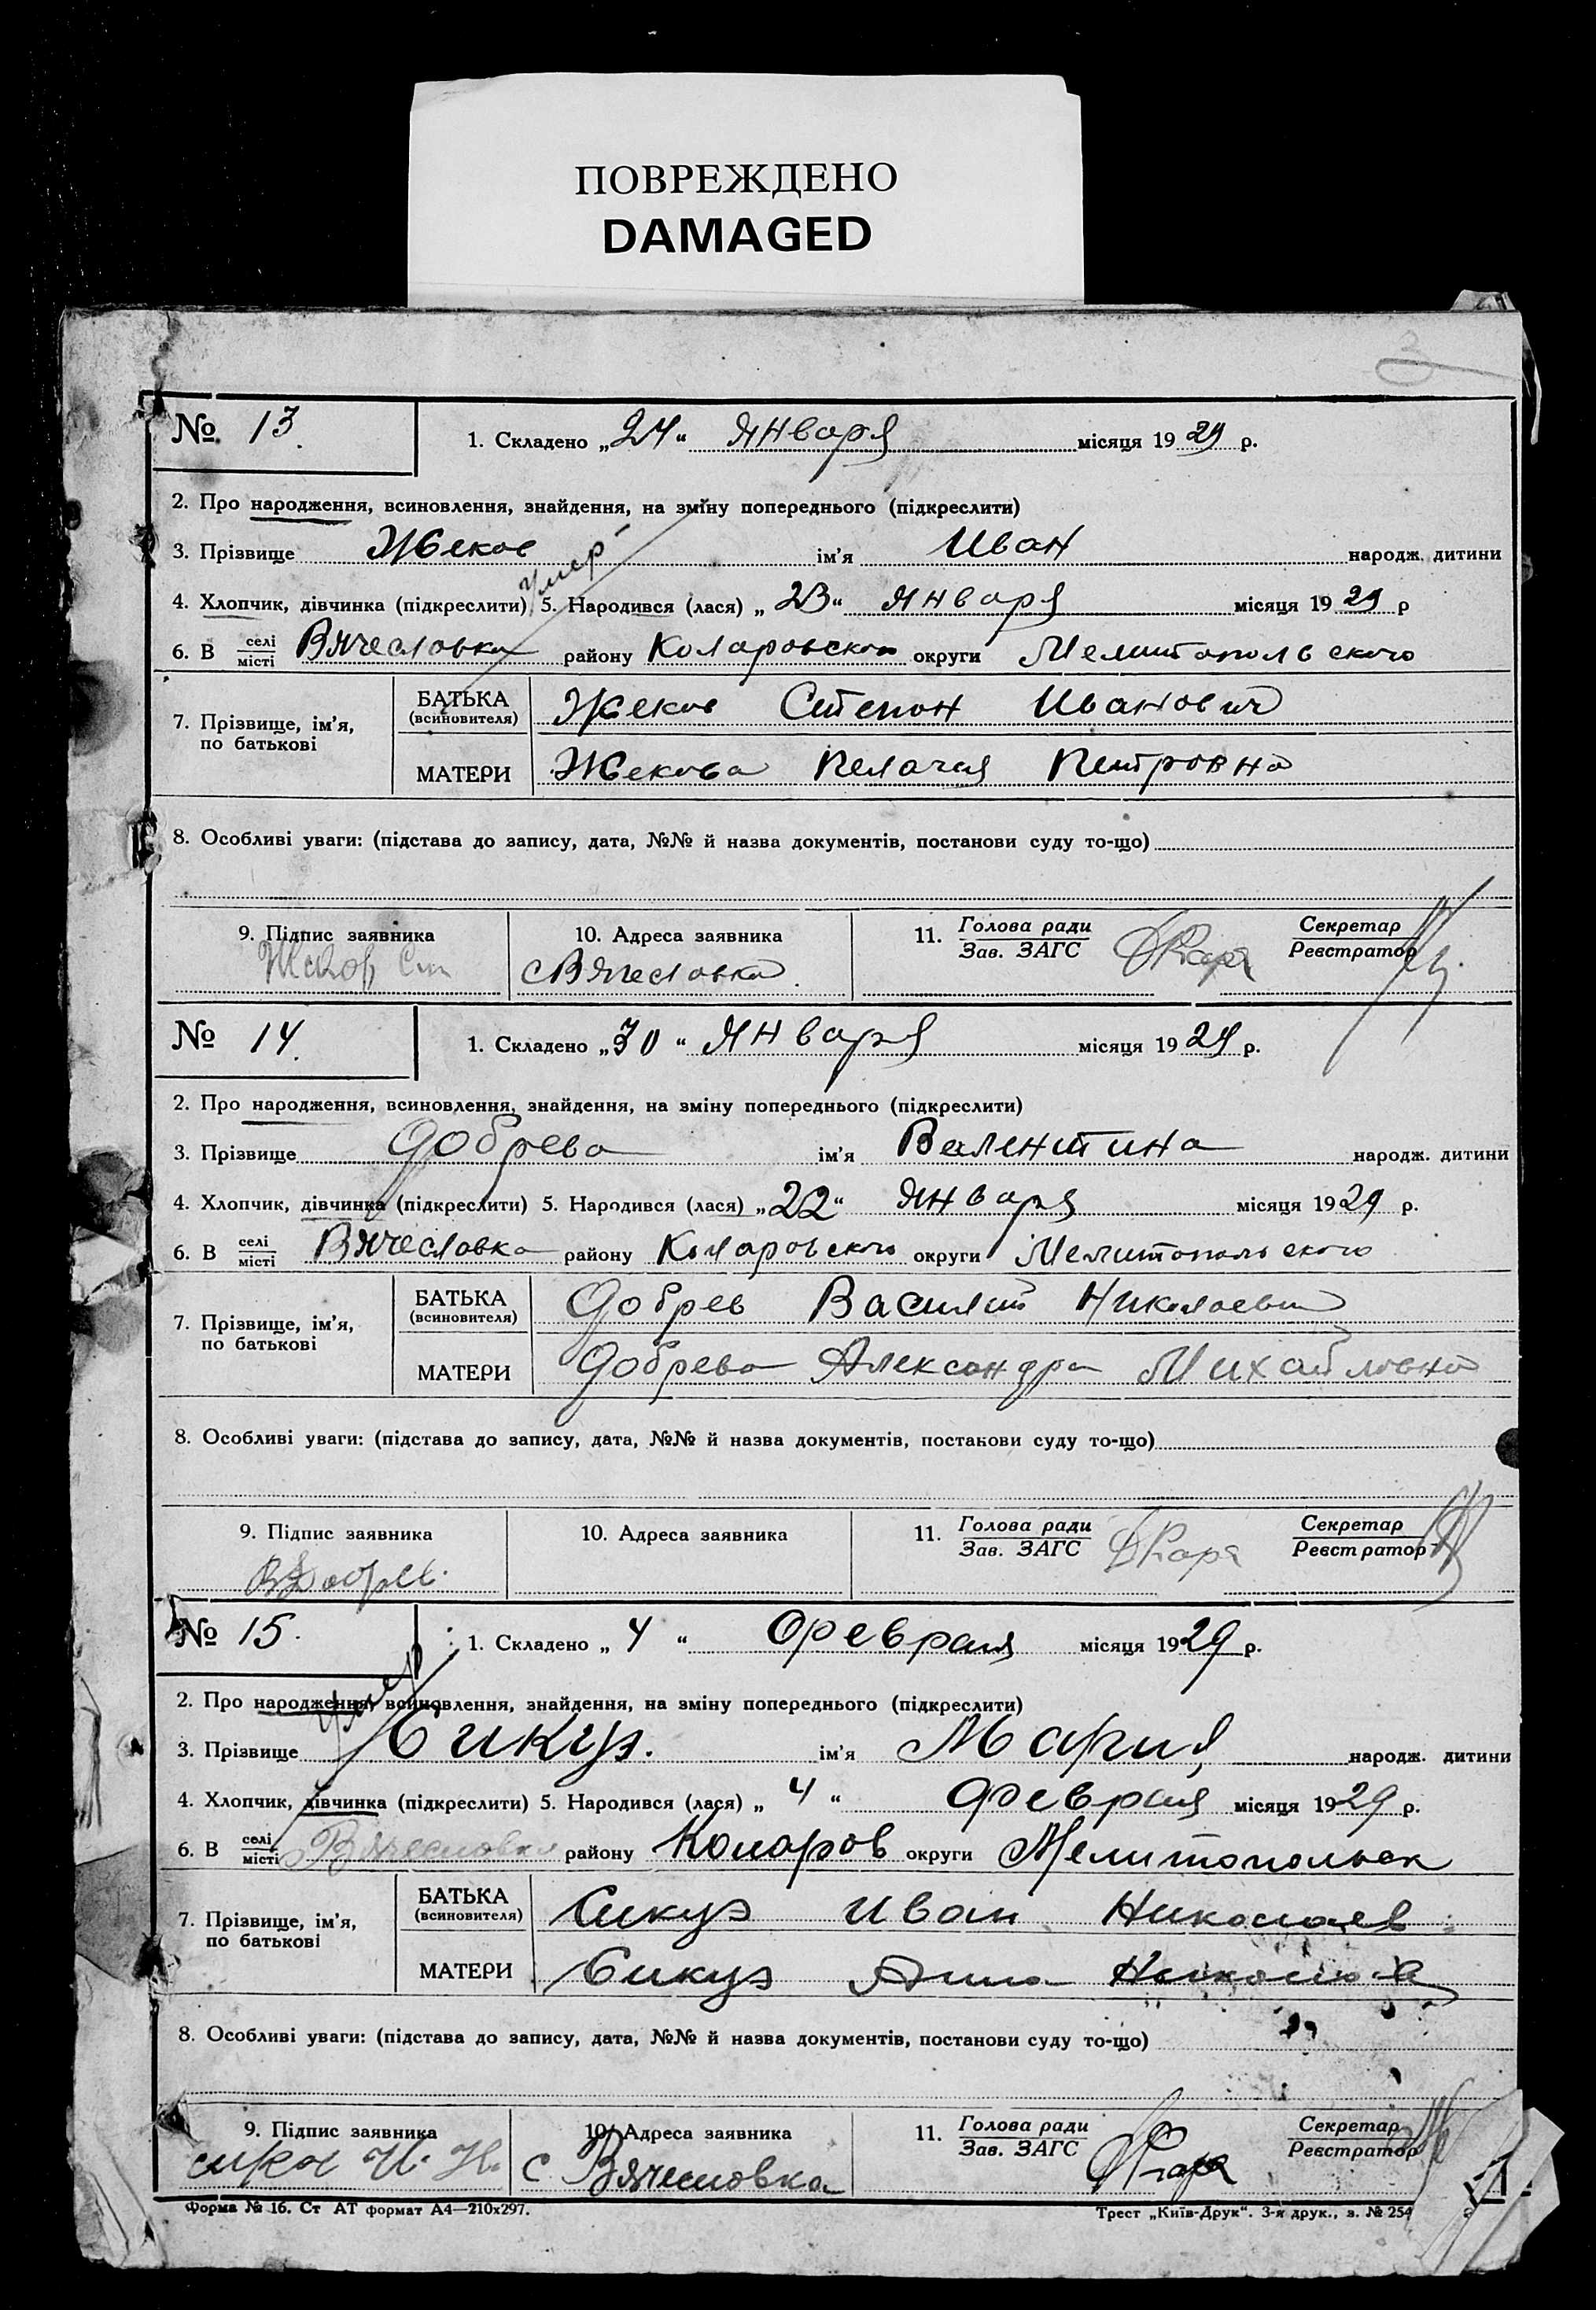 ПОВРЕЖДЕНО
DAMAGED
3
№ 13. 1. Складено „24“ января місяця 1929 р.
2. Про народження, всиновлення, знайдення, на зміну попереднього (підкреслити)
3. Прізвище Жеков ім’я Иван народж. дитини
умер
4. Хлопчик, дівчинка (підкреслити) 5. Народився (лася) „23“ января місяця 1929 р
6. В селі/місті Вячесловка району Коларовского округи Мелитопольского
7. Прізвище, ім’я, по батькові БАТЬКА (всиновителя) Жеков Степон Иванович
МАТЕРИ Жекова Пелагея Петровна
8. Особливі уваги: (підстава до запису, дата, №№ й назва документів, постанови суду то-що)
9. Підпис заявника 10. Адреса заявника 11. Голова ради/Зав. ЗАГС Секретар/Реєстратор
Жеков Сте с Вячесловка
№ 14. 1. Складено „30“ января місяця 1929 р.
2. Про народження, всиновлення, знайдення, на зміну попереднього (підкреслити)
3. Прізвище Добрева ім’я Валентина народж. дитини
4. Хлопчик, дівчинка (підкреслити) 5. Народився (лася) „22“ января місяця 1929 р.
6. В селі/місті Вячесловка району Коларовского округи Мелитопольского
7. Прізвище, ім’я, по батькові БАТЬКА (всиновителя) Добрев Василий Николаевич
МАТЕРИ Добрева Александра Михайловна
8. Особливі уваги: (підстава до запису, дата, №№ й назва документів, постанови суду то-що)
9. Підпис заявника 10. Адреса заявника 11. Голова ради/Зав. ЗАГС Секретар/Реєстратор
№ 15. 1. Складено „4“ Февраля місяця 1929 р.
умер
2. Про народження, всиновлення, знайдення, на зміну попереднього (підкреслити)
3. Прізвище Сикуз. ім’я Мария народж. дитини
4. Хлопчик, дівчинка (підкреслити) 5. Народився (лася) „4“ Февраля місяця 1929 р.
6. В селі/місті Вячесловка району Коларов округи Мелитопольск
7. Прізвище, ім’я, по батькові БАТЬКА (всиновителя) Сикуз Иван Николаев
МАТЕРИ Сикуз Анна
8. Особливі уваги: (підстава до запису, дата, №№ й назва документів, постанови суду то-що)
9. Підпис заявника 10. Адреса заявника 11. Голова ради/Зав. ЗАГС Секретар/Реєстратор
И. Н. с Вячесловка
Форма № 16. Ст АТ формат А4—210х297. Трест „Київ-Друк“. 3-я друк., з. № 254